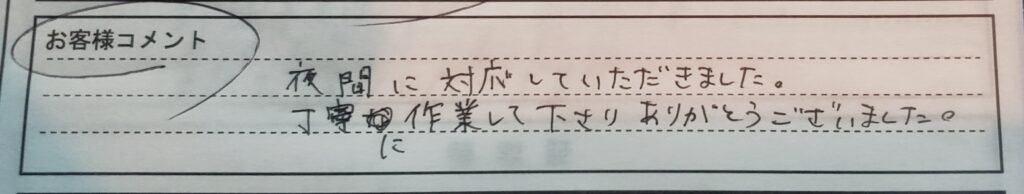 お客様コメント
夜間に対応していただきました。
丁寧に作業して下さりありがとうございました。